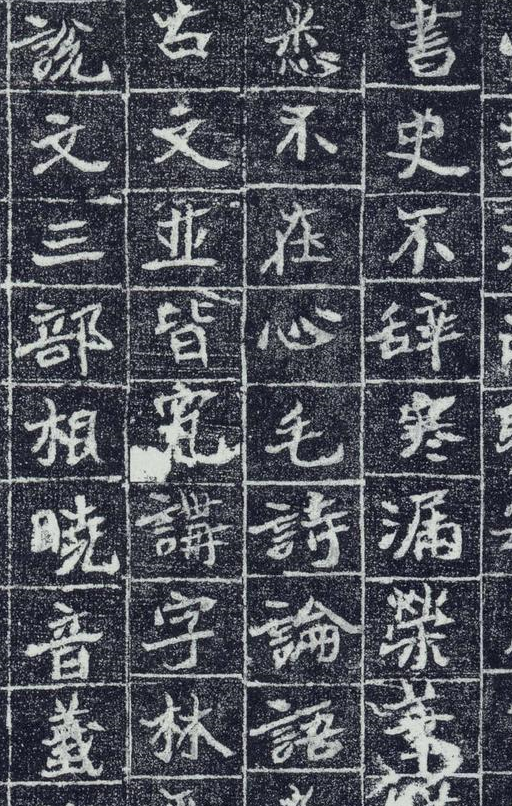 書史不辞寒漏榮
悉不在心毛詩論語
古文並皆究講字林
説文三部相曉音義